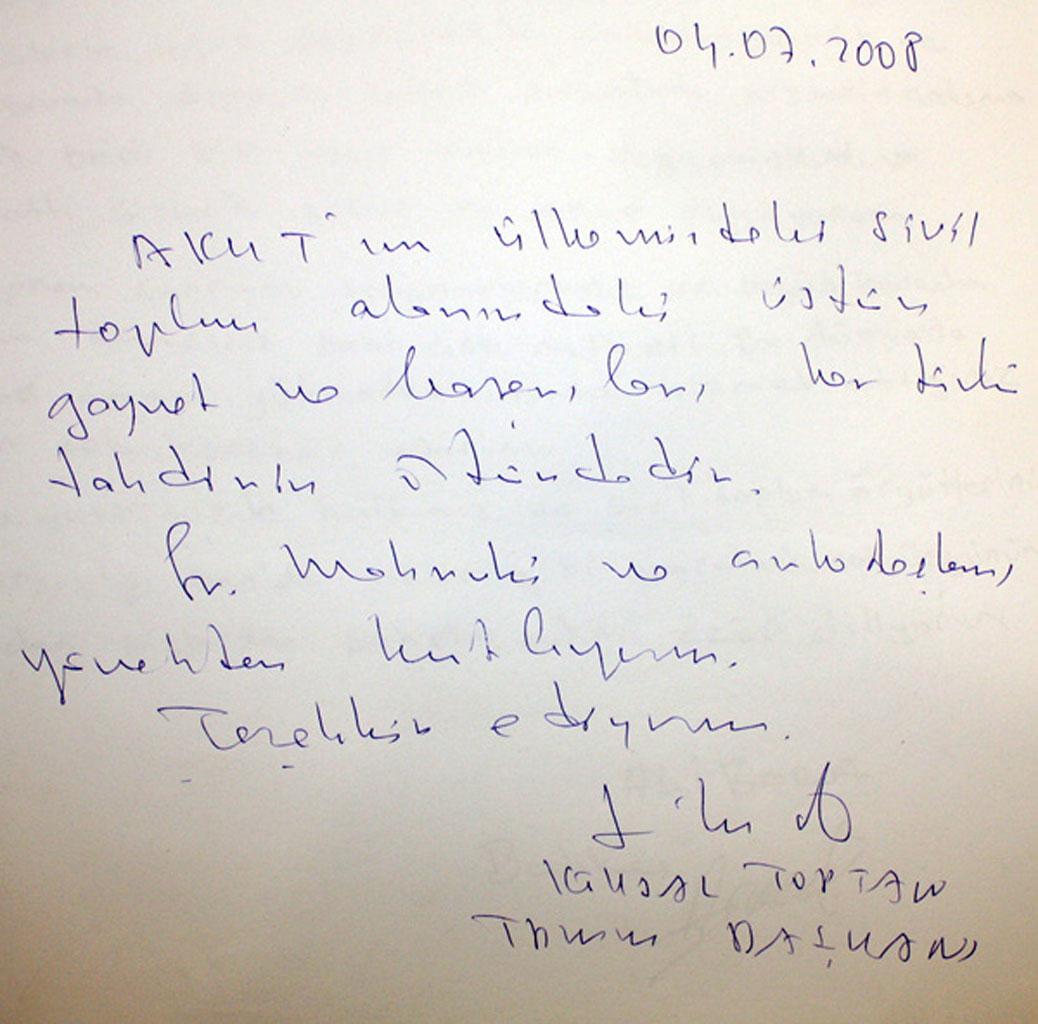 04.07.2008
AKUT'un ülkemizdeki sivil
toplum alanındaki üstün
gayret ve başarıları, her türlü
takdirin üstündedir.
Sn. Mahruki ve arkadaşlarını
yürekten kutluyorum.
Teşekkür ediyorum.
KÖKSAL TOPTAN
TBMM BAŞKANI